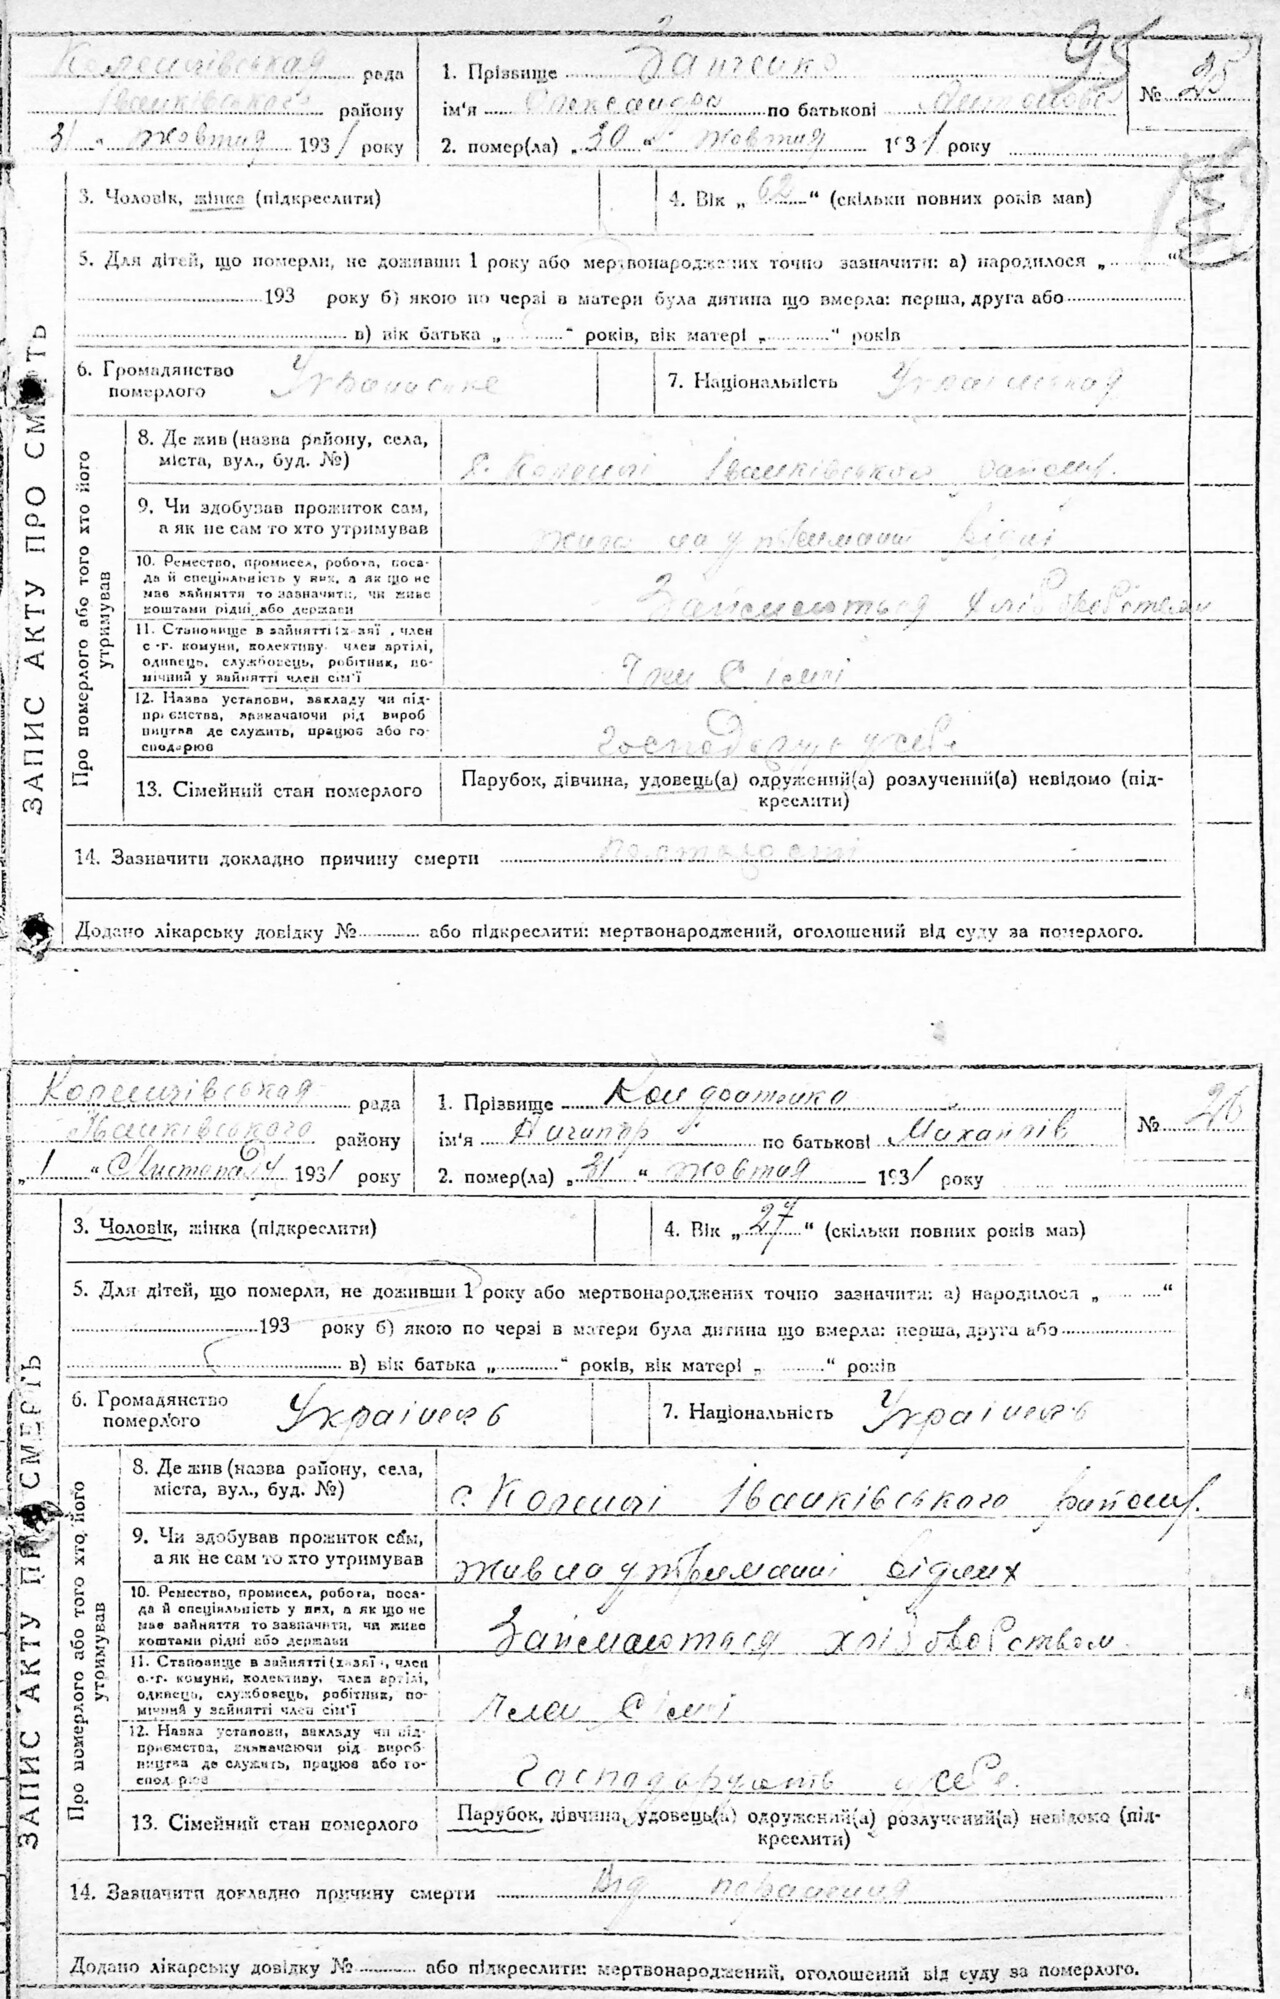 95
рада
Іванківського району
31 " жовтня 1931 року
1. Прізвище Занченко
ім'я Олександра по батькові Антонова
2. помер(ла) „30 " жовтня 1931 року
№ 25
ЗАПИС АКТУ ПРО СМЕРТЬ
3. Чоловік, жінка (підкреслити)
4. Вік „ 62 " (скільки повних років мав)
5. Для дітей, що померли, не доживши 1 року або мертвонароджених точно зазначити: а) народилося „ "
193 року б) якою по черзі в матери була дитина що вмерла: перша, друга або
в) вік батька „ " років, вік матері „ " років
6. Громадянство
померлого Українське
7. Національність Українськая
Про померлого або того хто його утримував
8. Де жив (назва району, села,
міста, вул., буд. №)
с. Коленці Іванківського району.
9. Чи здобував прожиток сам,
а як не сам то хто утримував
жила на утриманні рідні
10. Ремество, промисел, робота, поса-
да й спеціяльність у них, а як що не
має зайняття то зазначити, чи живе
коштами рідні або держави
Займаються хліборобством
11. Становище в зайнятті (хазяї, член
с.-г. комуни, колективу, член артілі,
одинець, службовець, робітник, по-
мічний у зайнятті член сім'ї
Член Сімьї
12. Назва установи, закладу чи під-
приємства, зазначаючи рід вироб
ництва де служить, працює або го-
сподарює
у себе
13. Сімейний стан померлого
Парубок, дівчина, удовець(а) одружений(а) розлучений(а) невідомо (під-
креслити)
14. Зазначити докладно причину смерти по старості
Додано лікарську довідку № або підкреслити: мертвонароджений, оголошений від суду за померлого.
рада
Іванківського району
„ 1 " Листопада 1931 року
1. Прізвище Кондратенко
ім'я Ничипір по батькові Михайлів
2. помер(ла) „31 " жовтня 1931 року
№ 26
ЗАПИС АКТУ ПРО СМЕРТЬ
3. Чоловік, жінка (підкреслити)
4. Вік „ 27 " (скільки повних років мав)
5. Для дітей, що померли, не доживши 1 року або мертвонароджених точно зазначити: а) народилося „ "
193 року б) якою по черзі в матери була дитина що вмерла: перша, друга або
в) вік батька „ " років, вік матері „ " років
6. Громадянство
померлого Українець
7. Національність Українець
Про померлого або того хто його утримував
8. Де жив (назва району, села,
міста, вул., буд. №)
с. Коленці Іванківського району.
9. Чи здобував прожиток сам,
а як не сам то хто утримував
жив на утриманні рідних
10. Ремество, промисел, робота, поса-
да й спеціяльність у них, а як що не
має зайняття то зазначити, чи живе
коштами рідні або держави
Займаються хліборобством
11. Становище в зайнятті (хазяї, член
с.-г. комуни, колективу, член артілі,
одинець, службовець, робітник, по-
мічний у зайнятті член сім'ї
Член Сімьї
12. Назва установи, закладу чи під-
приємства, зазначаючи рід вироб-
ництва де служить, працює або го-
сподарює
Господарують у себе.
13. Сімейний стан померлого
Парубок, дівчина, удовець(а) одружений(а) розлучений(а) невідомо (під-
креслити)
14. Зазначити докладно причину смерти Від поранення
Додано лікарську довідку № або підкреслити: мертвонароджений, оголошений від суду за померлого.